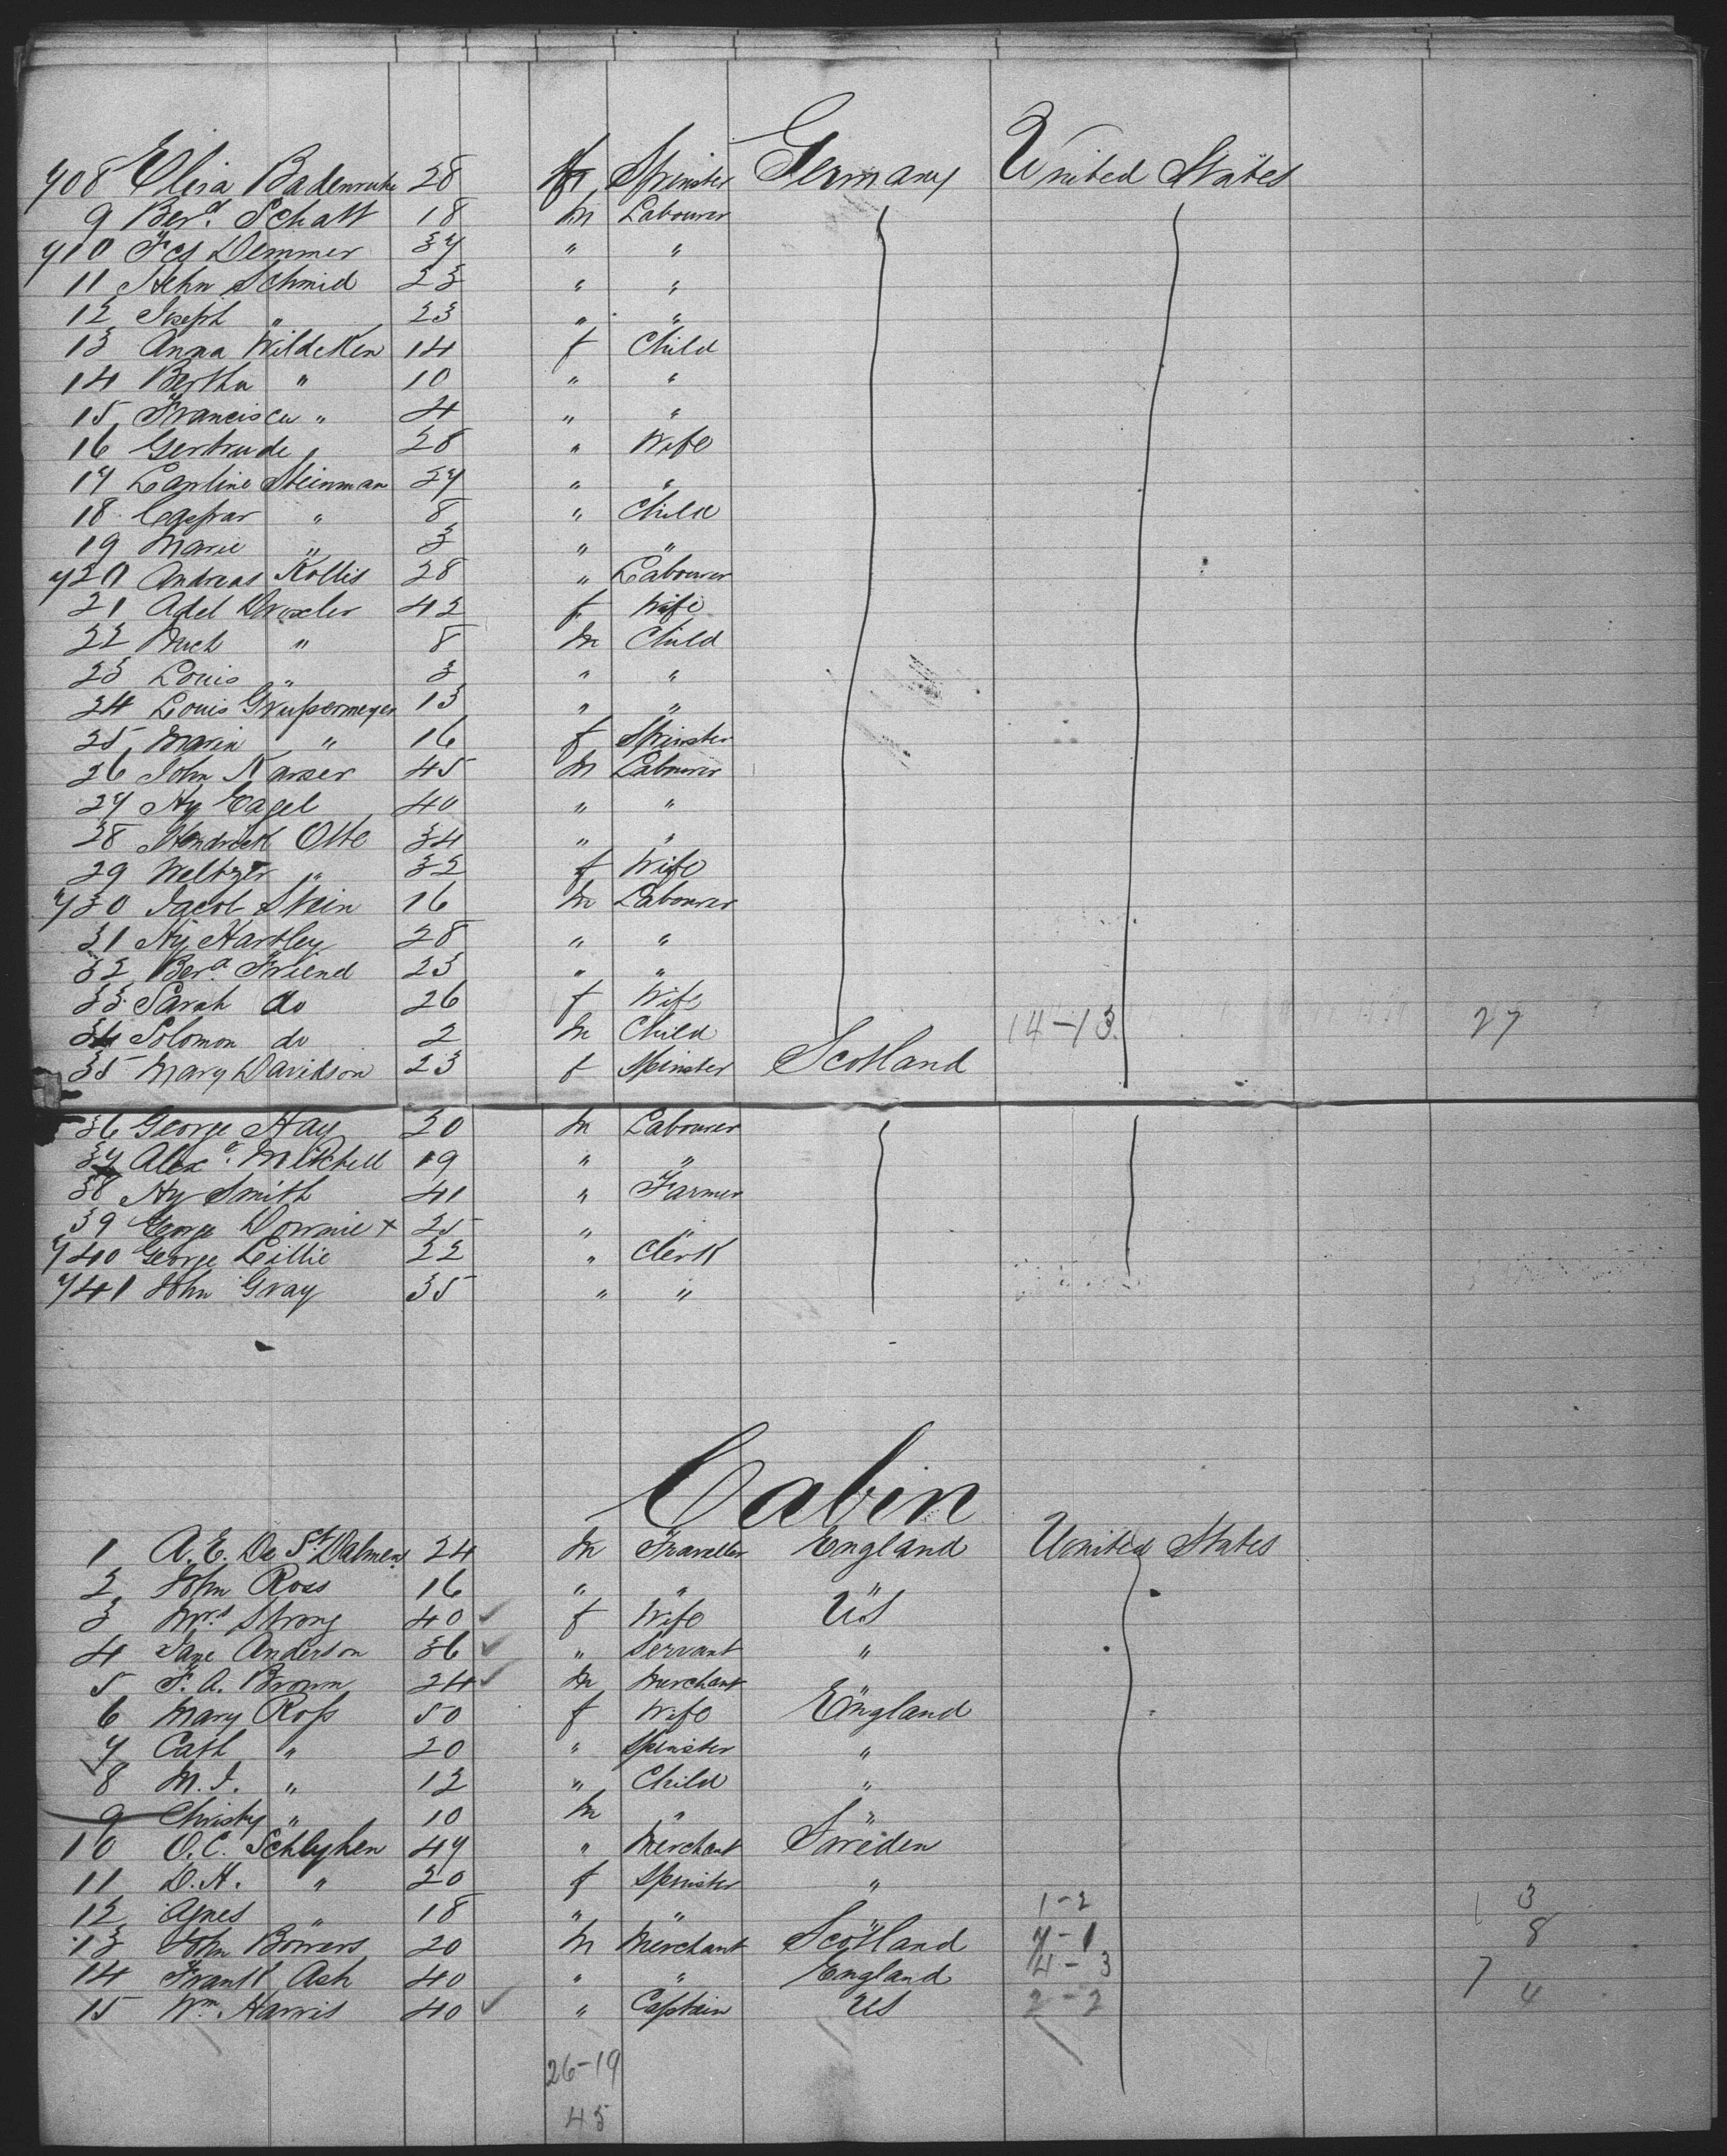 708 Elisa Badenruhe 28 f Spinster Germany United States
9 Ber.d Schatt 18 m Labourer
710 Fcs Demmer 37 " "
11 Jehn Schmid 23 " "
12 Joseph " 23 " "
13 Anna Wildeken 14 f Child
14 Bertha " 10 " "
15 Francisca " 4 " "
16 Gertrude " 28 " Wife
17 Carline Steinman 27 " "
18 Caspar " 8 " Child
19 Marie " 3 " "
720 Andreas Kollis 28 " Labourer
21 Adel Drexler 42 f Wife
22 " 8 m Child
23 Louis " 3 " "
24 Louis Grupermeyer 13 " "
25 Maria " 16 f Spinster
26 John Karser 45 m Labourer
27 Hy Eagel 40 " "
28 Hendrick Otte 34 " "
29 Meltzer " 32 f Wife
730 Jacob Stein 16 m Labourer
31 Hy Hartley 28 " "
32 Ber.d Friend 23 " "
33 Sarah do 26 f Wife
34 Solomon do 2 m Child 14-13 27
35 Mary Davidson 23 f Spinster Scotland
36 George Hay 20 m Labourer
37 Alex.r Mitchell 19 " "
38 Hy Smith 41 " Farmer
39 George Downie + 25 " "
740 George Lillie 22 " Clerk
741 John Gray 35 " "
Cabin
1 A. E. De St. Dalmens 24 m Traveller England United States
2 John Ross 16 " " "
3 Mrs Strong 40 ✓ f Wife US
4 Jane Anderson 36 ✓ " Servant "
5 F. A. Brown 24 ✓ m Merchant "
6 Mary Ross 50 f Wife England
7 Cath " 20 " Spinster "
8 M. J. " 12 " Child "
9 Christy " 10 m " "
10 O. C. Schlyhen 47 " Merchant Sweden
11 D. H. " 20 f Spinster "
12 Agnes " 18 " " " 1-2 3
13 John Bowers 20 m Merchant Scotland 7-1 8
14 Frank Ash 40 " " England 4-3 7
15 Wm. Harris 40 ✓ " Captain US 2-2 4
26-19
45